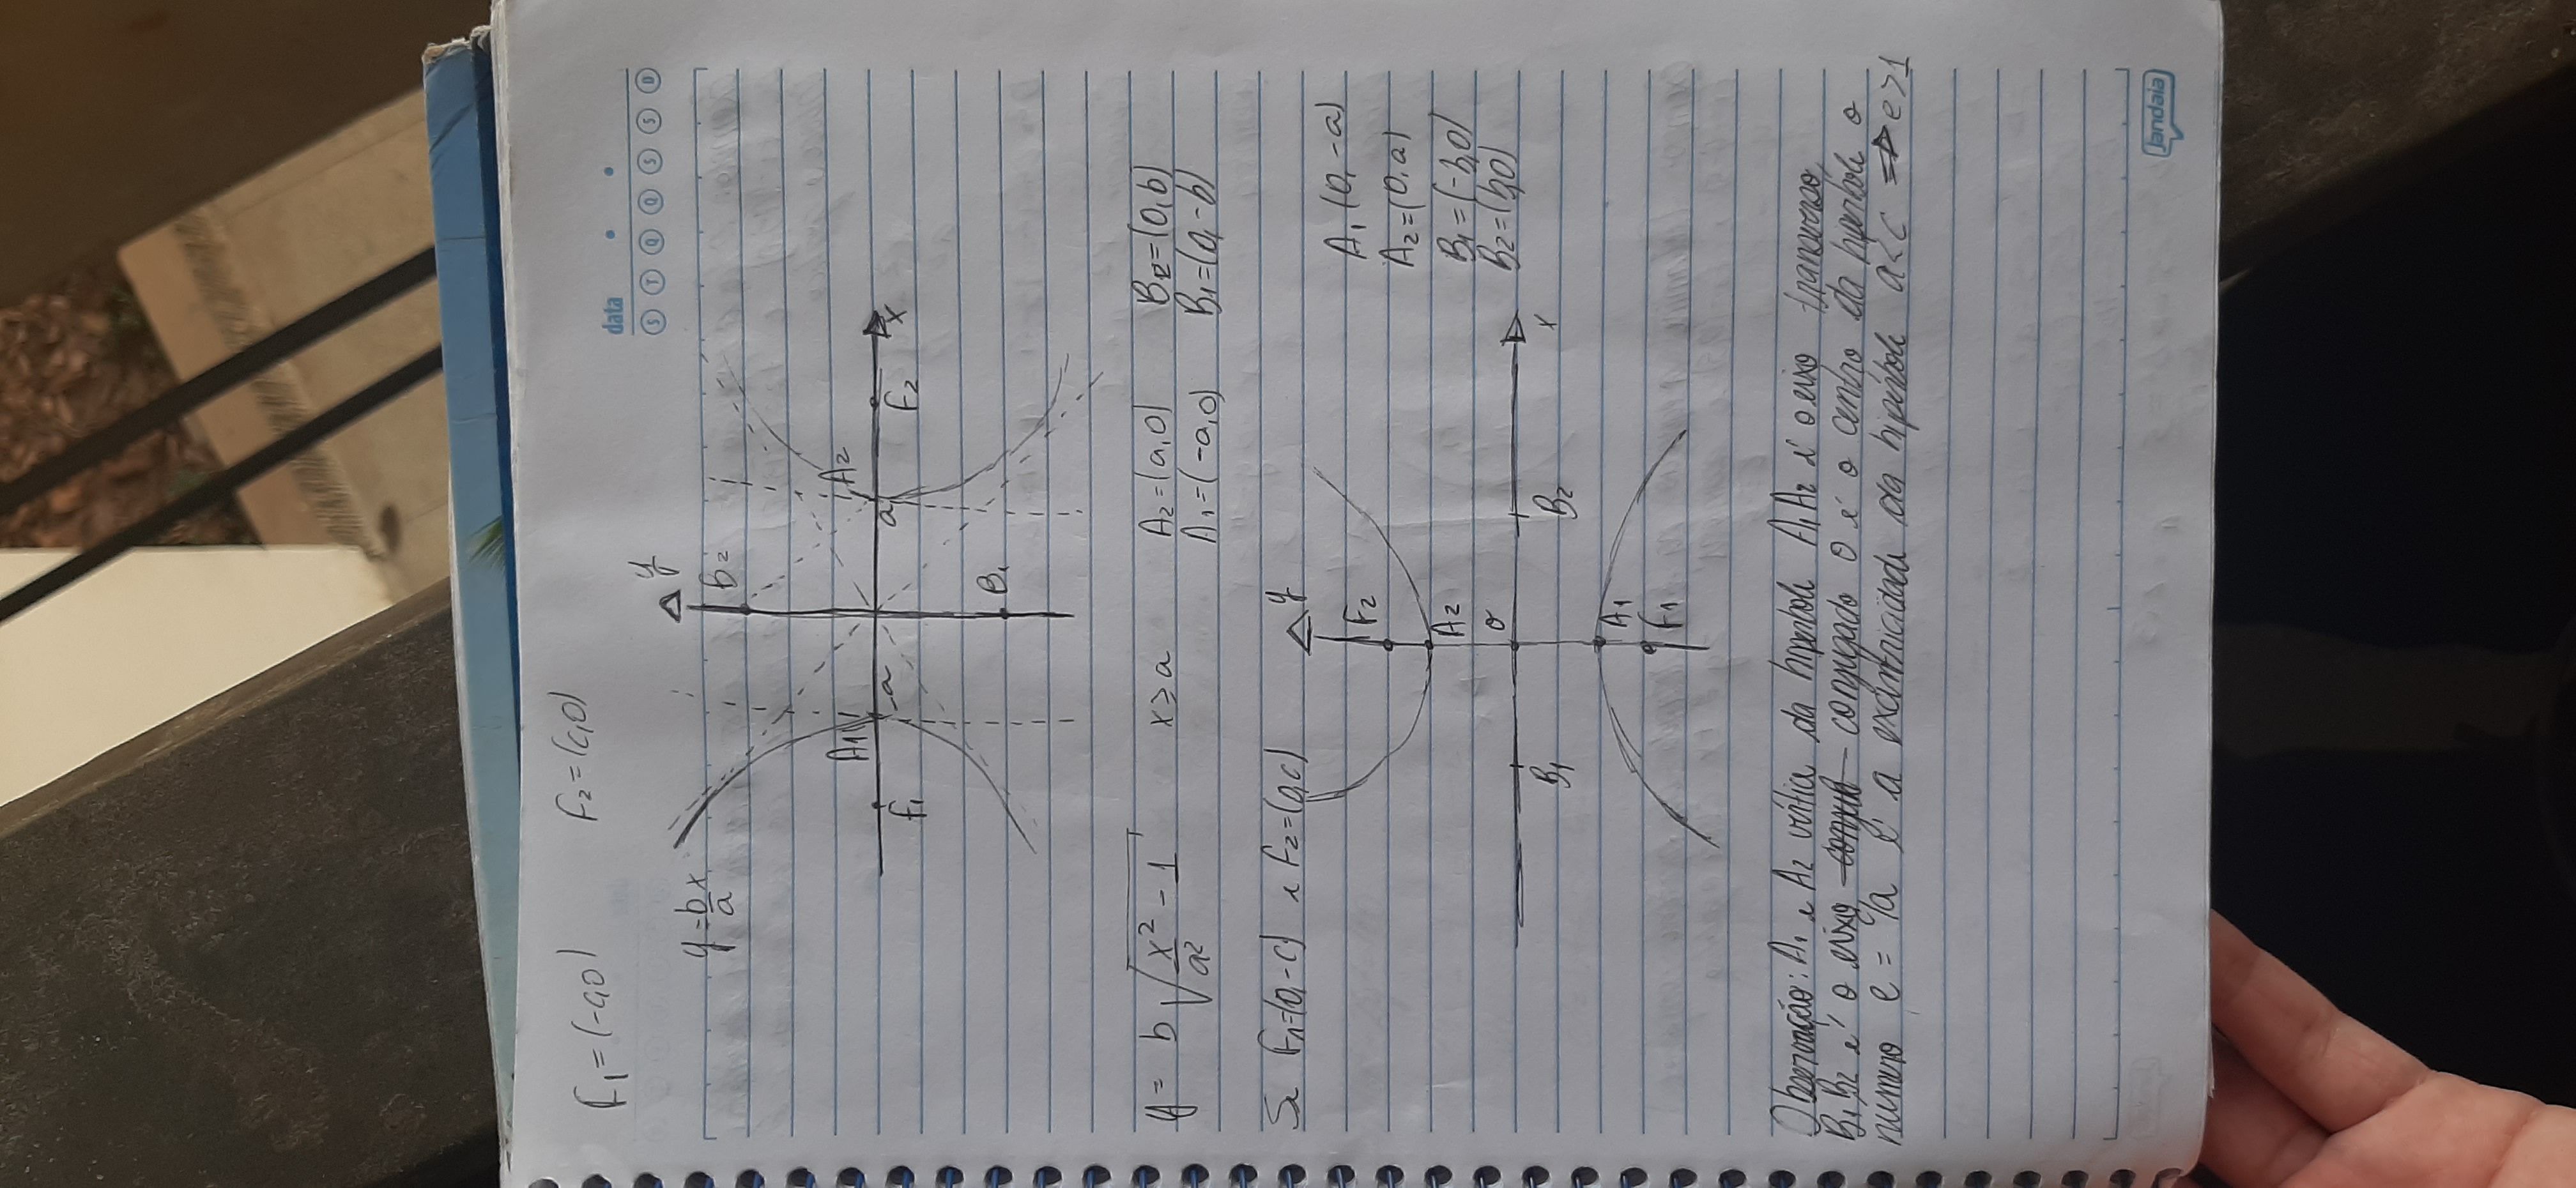 F₁=(-c,0) F₂=(c,0)
data
S T Q Q S S D
y=bx/a
y
B₂
A₁ A₂
-a a
F₁ F₂ x
B₁
y = b√(x²/a² - 1) x≥a A₂=(a,0) B₂=(0,b)
A₁=(-a,0) B₁=(0,-b)
Se F₁=(0,-c) e F₂=(0,c)
y
F₂
A₂
o
B₁ B₂ x
A₁
F₁
A₁(0,-a)
A₂=(0,a)
B₁=(-b,0)
B₂=(b,0)
Observação: A₁ e A₂ vértice da hiperbole A₁A₂ é o eixo transverso
B₁B₂ é o eixo conjugado O é o centro da hiperbole o
numero e = c/a é a excentricidade da hiperbole a<c ⇒ e>1
Jandaia